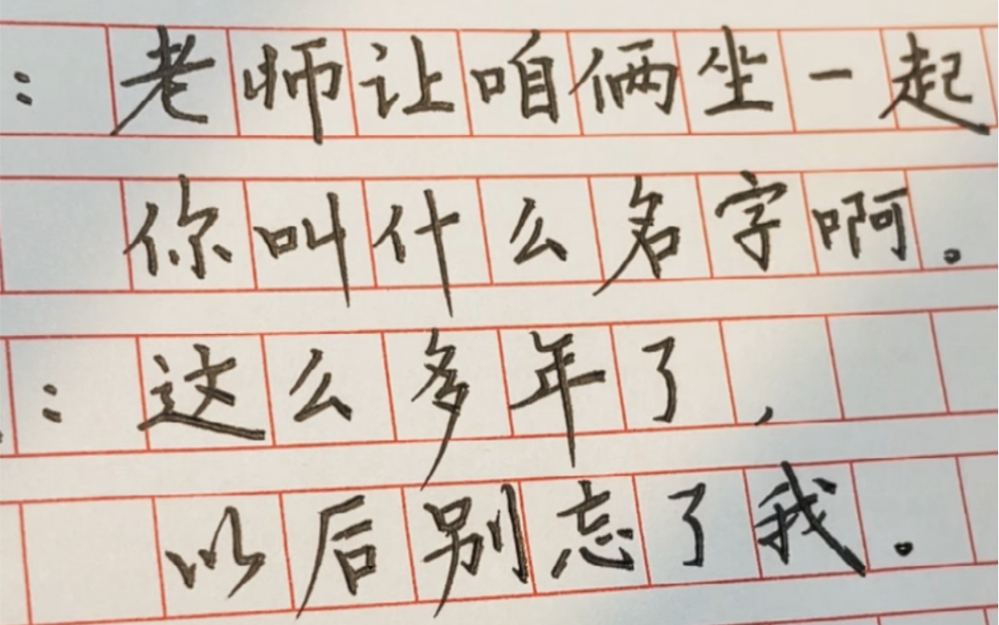 ：老师让咱俩坐一起
你叫什么名字啊。
：这么多年了，
以后别忘了我。